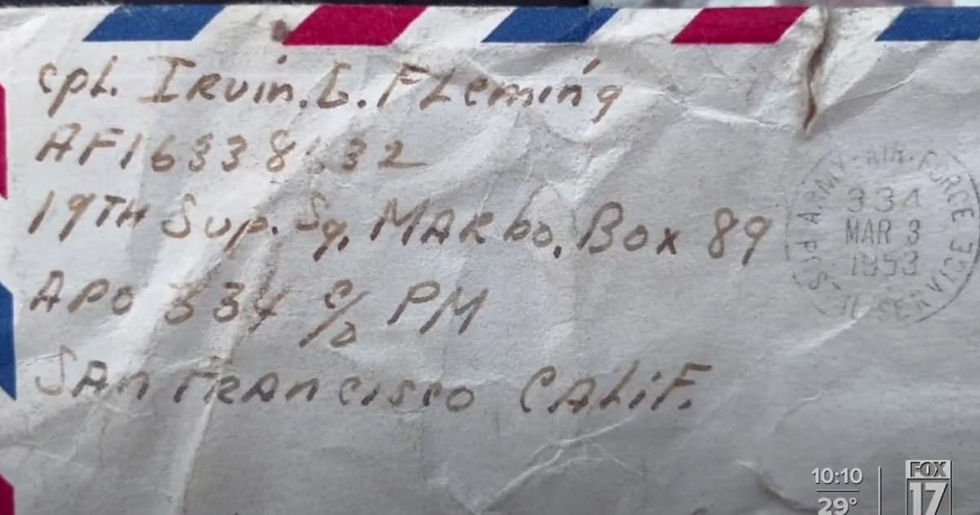 cpl. Irvin. G. Fleming
AF16338632
19TH Sup. Sq. MARbo, Box 89
APO 334 c/o PM
San Francisco CALiF.
ARMY-AIR FORCE
POSTAL SERVICE
334
MAR 3
1953
10:10
29°
FOX
17